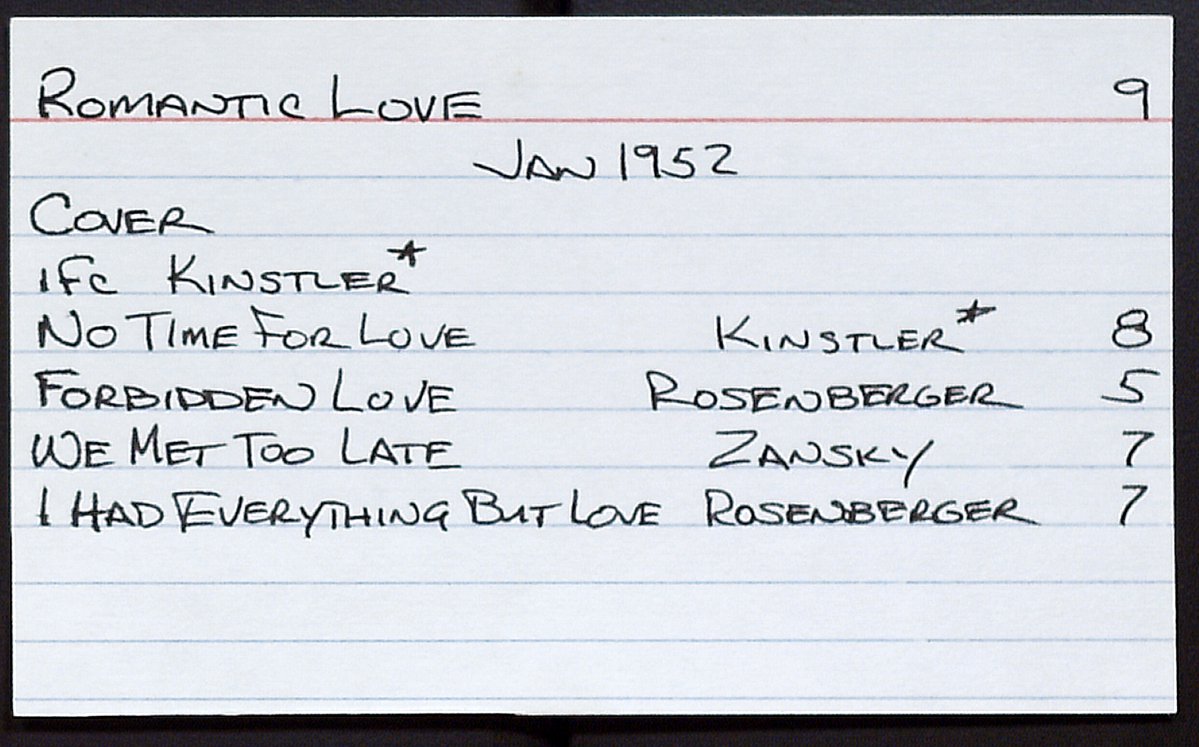 ROMANTIC LOVE 9
JAN 1952
COVER
IFC KINSTLER*
NO TIME FOR LOVE KINSTLER* 8
FORBIDDEN LOVE ROSENBERGER 5
WE MET TOO LATE ZANSKY 7
I HAD EVERYTHING BUT LOVE ROSENBERGER 7